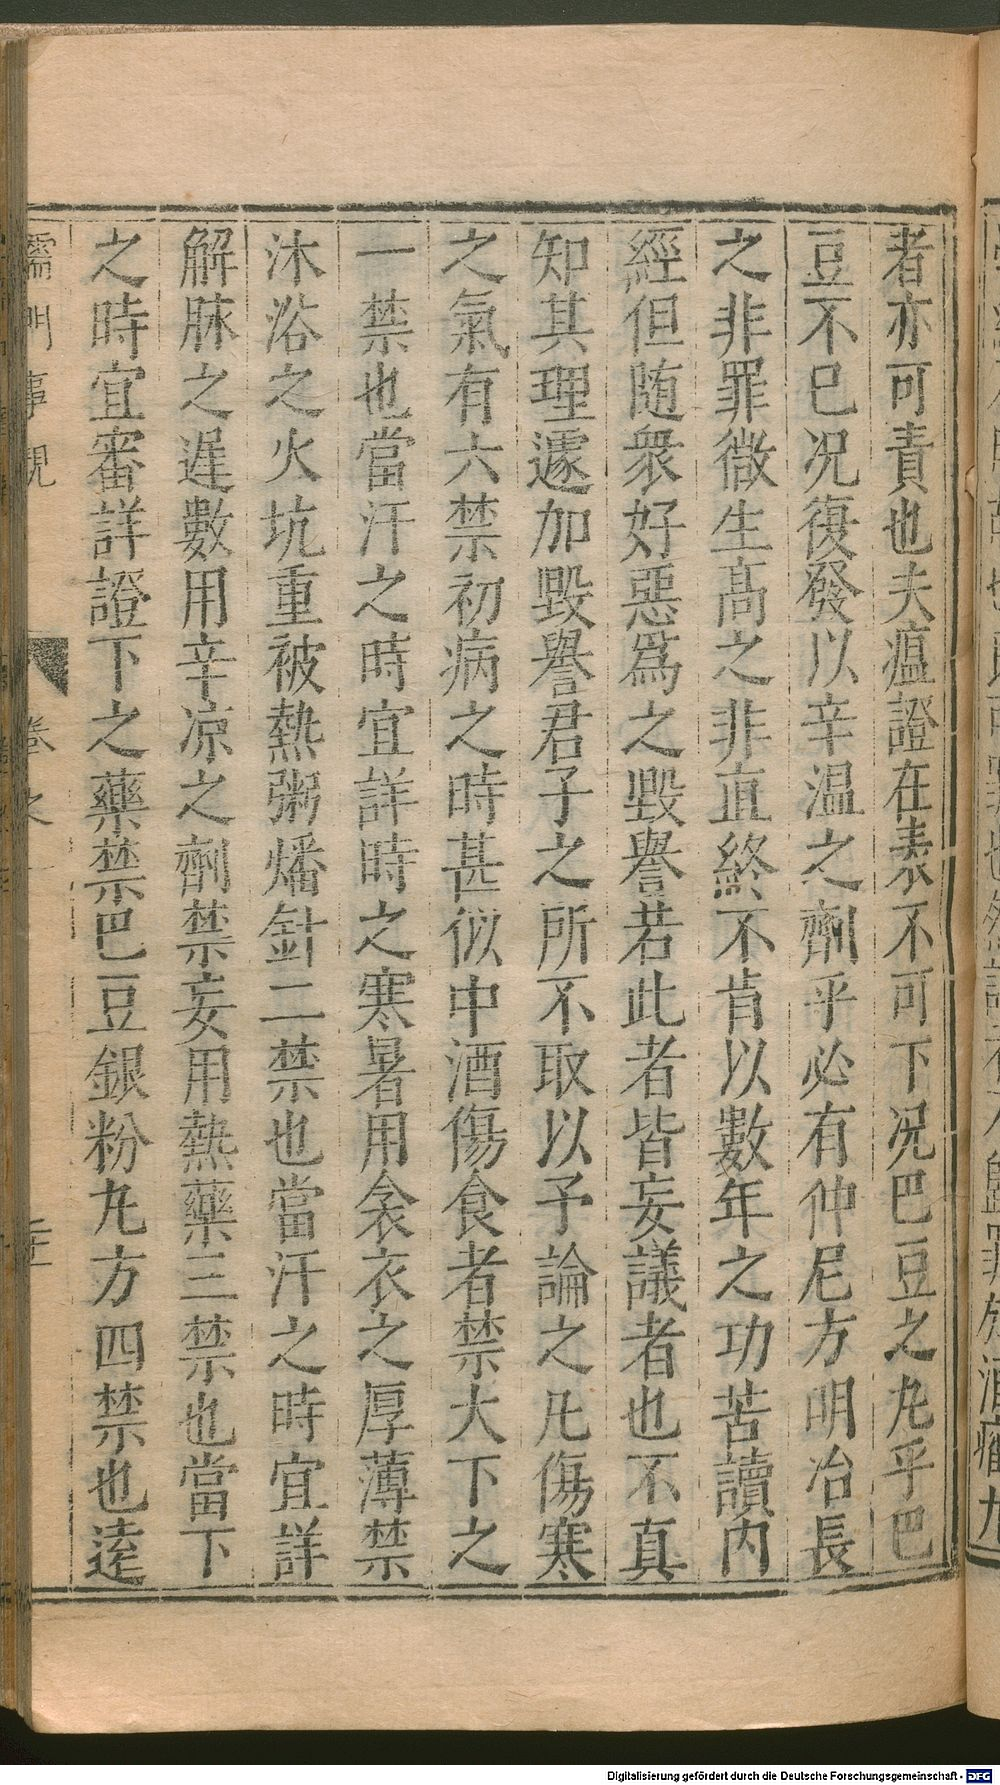 者亦可責也夫瘟證在表不可下况巴豆之丸乎巴
豆不已况復發以辛温之劑乎必有仲尼方明冶長
之非罪微生高之非直終不肯以數年之功苦讀内
經但随衆好惡爲之毀譽若此者皆妄議者也不真
知其理遽加毀譽君子之所不取以予論之凡傷寒
之氣有六禁初病之時甚似中酒傷食者禁大下之
一禁也當汗之時宜詳時之寒暑用衾衣之厚薄禁
沐浴之火坑重被熱粥燔針二禁也當汗之時宜詳
解脉之遲數用辛凉之劑禁妄用熱藥三禁也當下
之時宜審詳證下之藥禁巴豆銀粉丸方四禁也逺
儒門事親
卷之
Digitalisierung gefördert durch die Deutsche Forschungsgemeinschaft - DFG